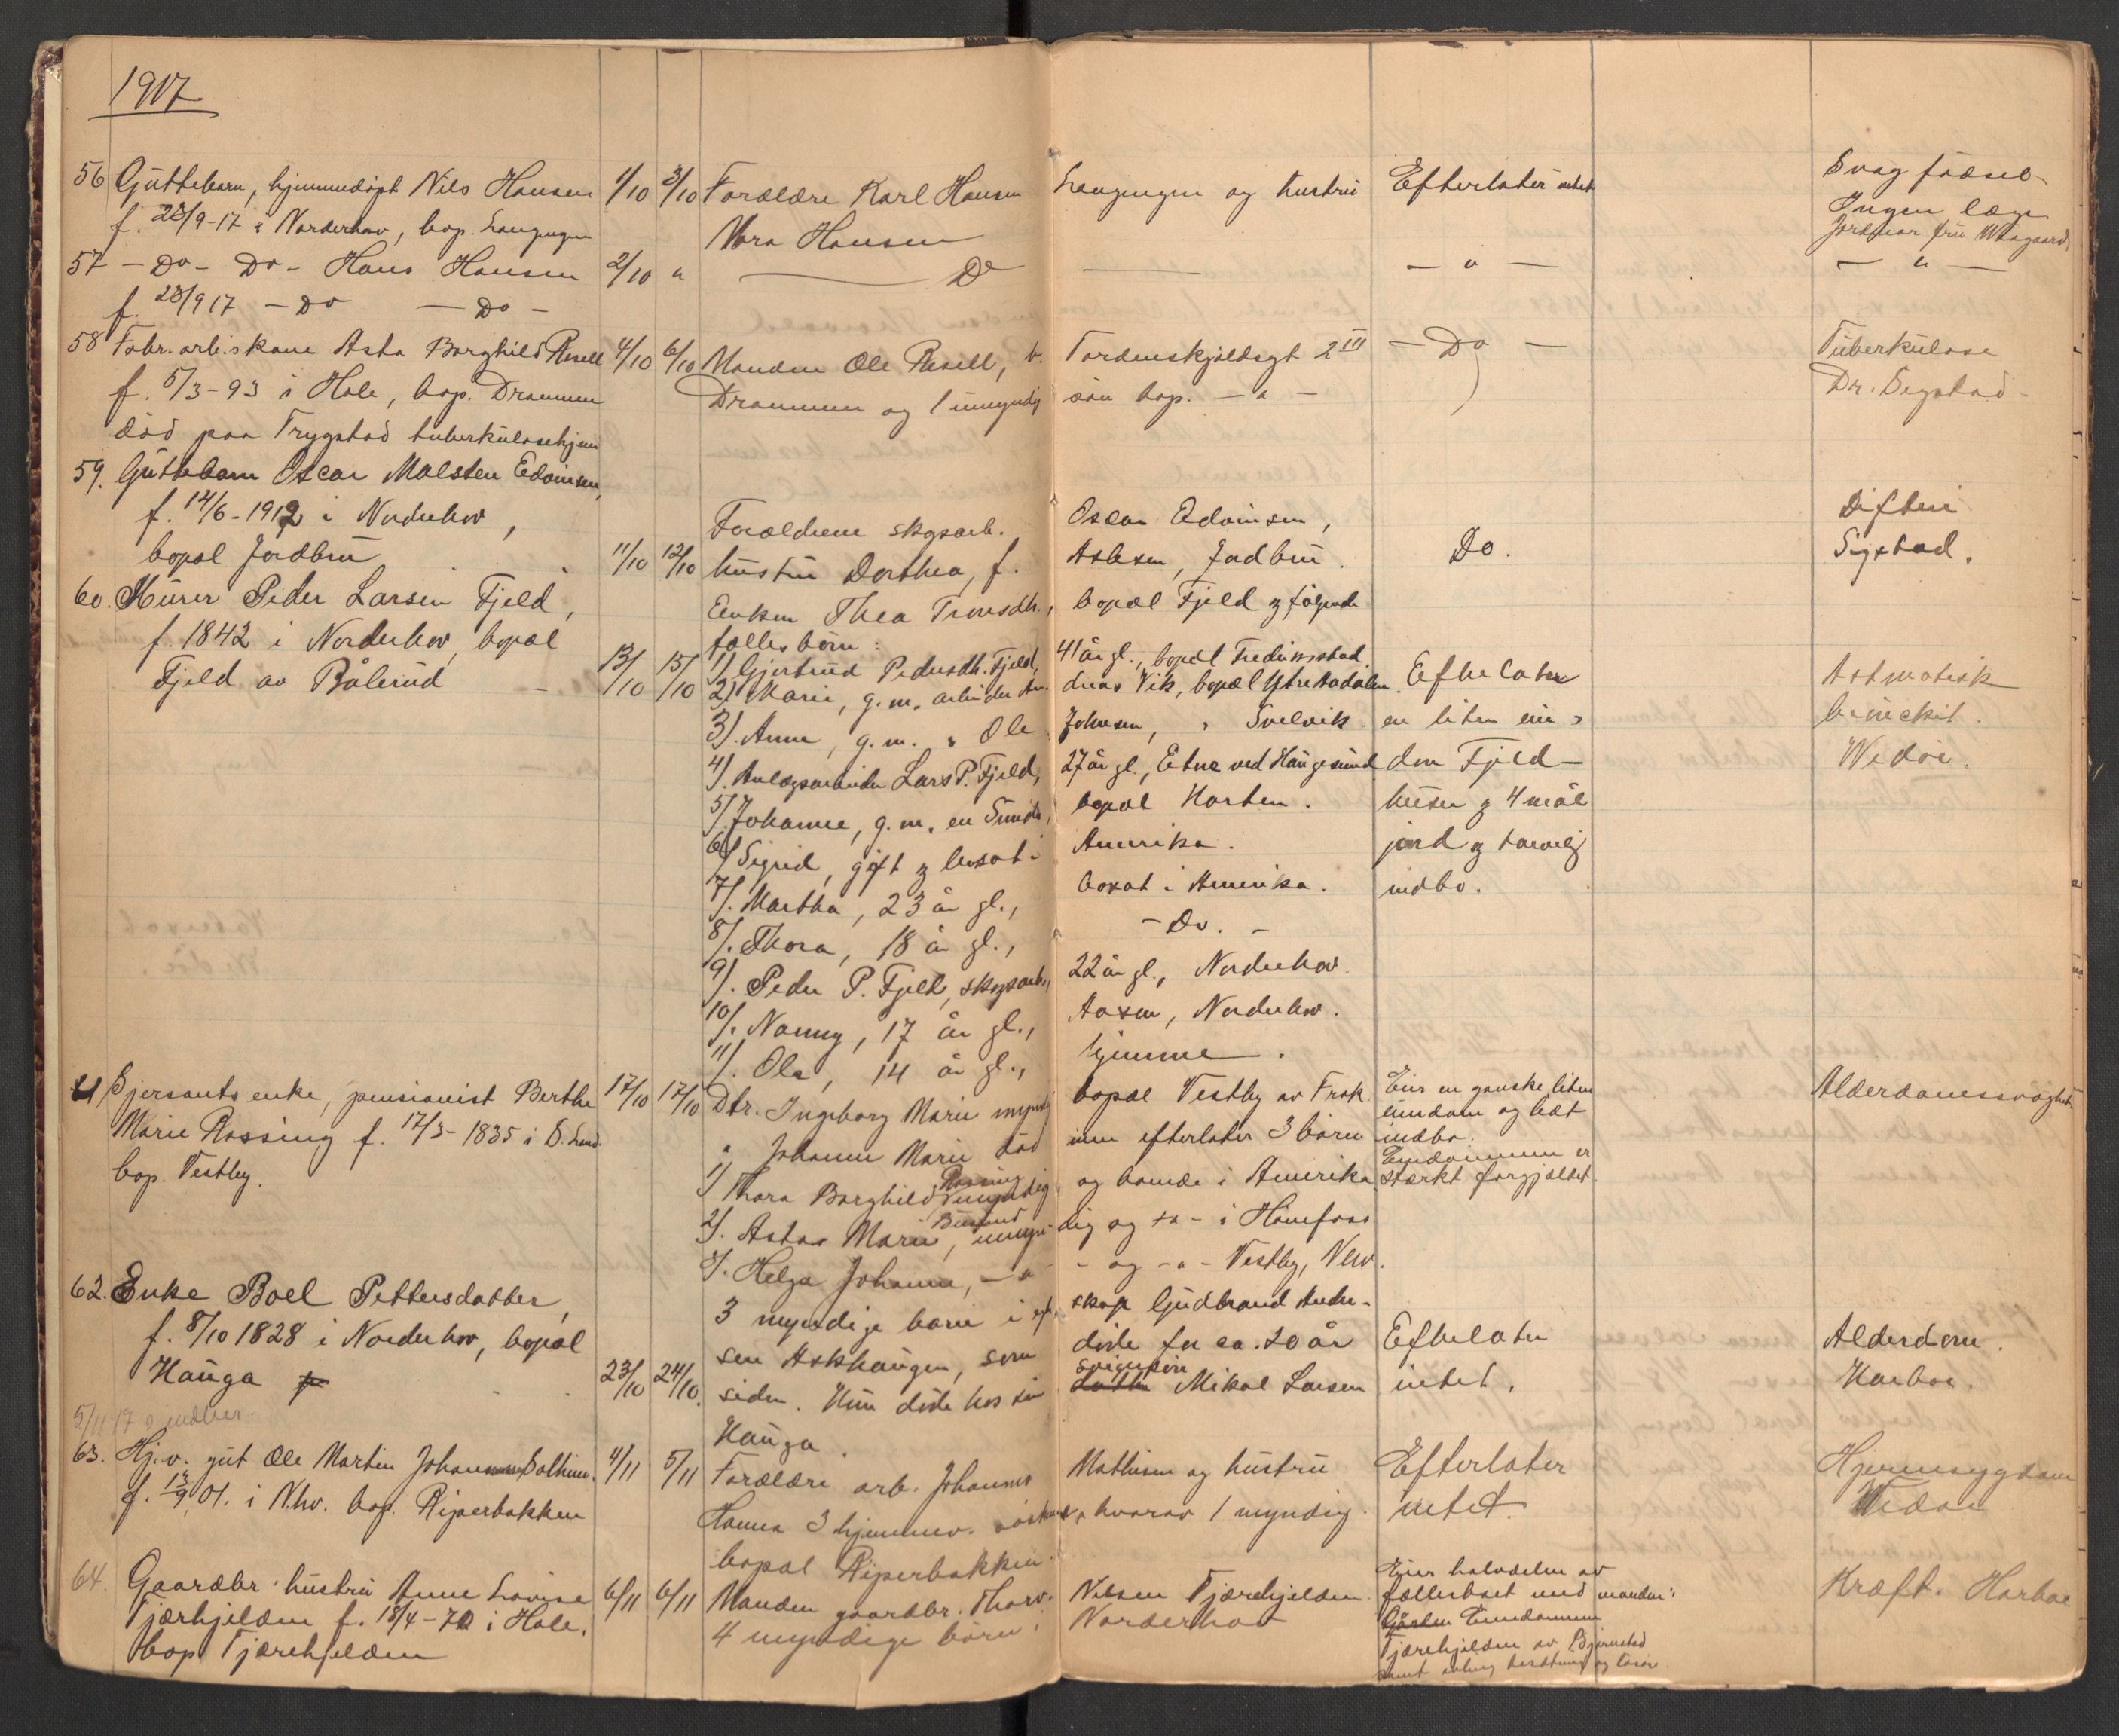 1917
56 Guttebarn, hjemmedöpt Nils Hansen 1/10 3/10 Forældre Karl Hansen Laugugen og hustru Efterlater intet Svag födsel
f. 28/9-17 i Norderhov, bop. Laugugen Mora Hansen Ingen læge
Jordmor fru Waagaard
57 - Do - Do - Hans Hansen 2/10 " Do - " - - " -
f. 28/9 17 - Do - Do -
58 Fabr. arb.s kone Asta Borghild Resell 4/10 6/10 Manden Ole Resell, b. Tordenskjoldsgt 2 III - Do - Tuberkulose
f. 5/3-93 i Hole, bop. Drammen Drammen og 1 umyndig sön bop. - " - Dr. Sigstad
död paa Trygstad tuberkulosehjem
59. Guttebarn Oscar Malsten Edvinsen,
f. 14/6-1912 i Norderhov, Forældrene skogsarb. Oscar Edvinsen, Difteri
bopæl Jordbru 11/10 12/10 hustru Dorthea, f. Aslesen, Jordbru. Do. Sigstad.
60. Murer Peder Larsen Fjeld, Enken Thea Tronsdtr., bopæl Fjeld og følgende
f. 1842 i Norderhov, bopæl fælles börn:
Fjeld av Bålerud 13/10 15/10 1) Gjertrud Pedersdtr. Fjeld, 41 år gl., bopæl Fredriksstad.
2) Marie, g.m. arbeider Andreas Vik, bopæl Ytre Aadalen. Efterlater Astmatisk
3). Anne, g.m. " Ole Johnsen, " Svelvik. en liten eien- bronckit.
4). Anlægsarbeider Lars P. Fjeld, 27 år gl., Etne ved Haugesund dom Fjeld- Wedöe.
5) Johanne, g.m. en Smeds, bopæl Horten. huser og 4 mål
6) Sigrid, gift og bosat i Amerika. jord og tarvelig
7). Martha, 23 år gl., bosat i Amerika. indbo.
8). Thora, 18 år gl., - Do. -
9). Peder P. Fjeld, skogsarb., 22 år gl., Norderhov.
10). Nanny, 17 år gl., Aasen, Norderhov.
11). Ole, 14 år gl., hjemme.
61 Sjersants enke, pensionist Berthe 17/10 17/10 Dtr. Ingeborg Marie myndig bopæl Vestby av Frok Eier en ganske liten Alderdomssvaghet
Marie Rossing f. 17/3-1835 i S. Land " Johanne Marie död inen efterlater 3 börn eiendom og litet indbo.
bop. Vestby. 1) Thora Borghild Rossing myndig og boende i Amerika Eiendommen er stærkt forgjældet.
2). Astar Marie Buslund, umyndig og - " - i Hönefoss
3). Helga Johanne, - " - - og - " - Vestby, Nhov.
62. Enke Boel Pettersdatter, 3 myndige barn i egteskap Gudbrand Ander-
f. 8/10 1828 i Norderhov, bopæl sen Askhaugen, som döde for ca. 20 år Efterlater Alderdom.
Hauga 23/10 24/10. siden. Hun döde hos sin svigersön Mikal Larsen intet. Harboe.
5/11 17 Hauga.
63. Hj.v. gut Ole Martin Johannes Solheim. 4/11 5/11 Forældre arb. Johannes Mathisen og hustru Efterlater Hjernesygdom
f. 13/9 01. i Nhv. bop. Riperbakken Hanna 3 hjemmev. söskend, hvorav 1 myndig. intet. Wedöe
bopæl Riperbakken
64. Gaardbr. hustru Anne Lovise 6/11 6/11 Manden gaardbr. Thorv. Nilsen Tjærehjelden Eier halvdelen av Kræft. Harboe
Tjærhjelden f. 18/4-70 i Hole. 4 myndige börn. Norderhov fællesboet med manden:
bop Tjærehjelden Gården Eiendommen
Tjærehjelden av Björnstad
samt avling besætning og lösöre